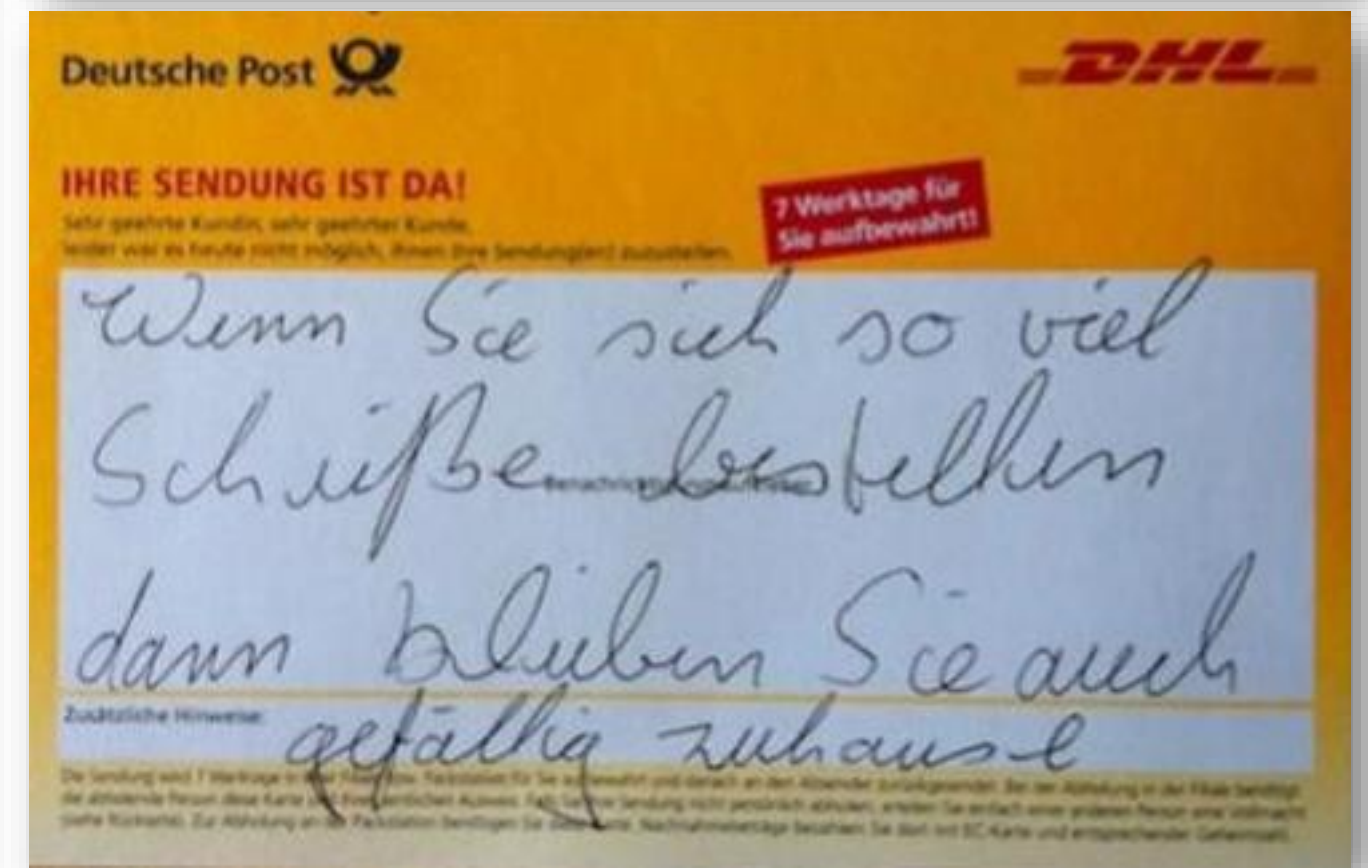 Deutsche Post DHL
IHRE SENDUNG IST DA!
7 Werktage für
Sie aufbewahrt!
Sehr geehrte Kundin, sehr geehrter Kunde,
leider war es heute nicht möglich, Ihnen Ihre Sendung(en) zuzustellen.
Wenn Sie sich so viel
Scheiße bestellen
dann bleiben Sie auch
Zusätzliche Hinweise:
gefällig zuhause
Die Sendung wird 7 Werktage in der Filiale bzw. Packstation für Sie aufbewahrt und danach an den Absender zurückgesendet. Bei der Abholung in der Filiale benötigt
die abholende Person diese Karte und Ihren amtlichen Ausweis. Sendung nicht persönlich abholen, erteilen Sie einfach einer anderen Person eine Vollmacht
(siehe Rückseite). Zur Abholung an der Packstation benötigen Sie diese Karte. Nachnahmebeträge bezahlen Sie dort mit EC-Karte und entsprechender Geheimzahl.